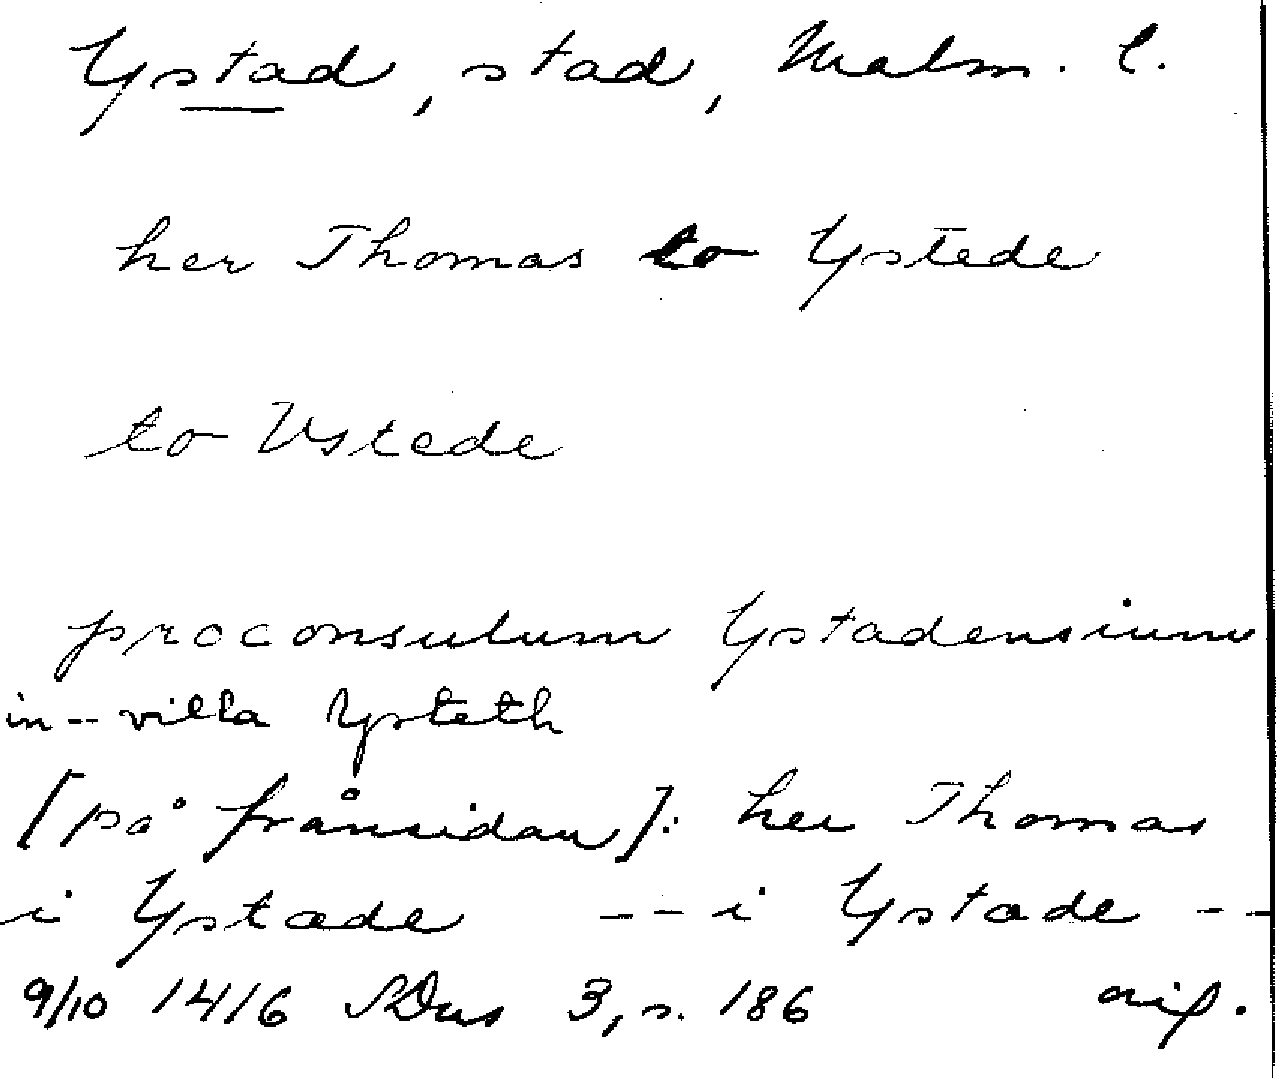 Ystad, stad, Malm. l.
her Thomas to Ystede
to Vstede
proconsulum Ystadensium
in -- villa Ysteth
[på frånsidan]: her Thomas
i Ystæde -- i Ystade --
9/10 1416 SDns 3, s. 186